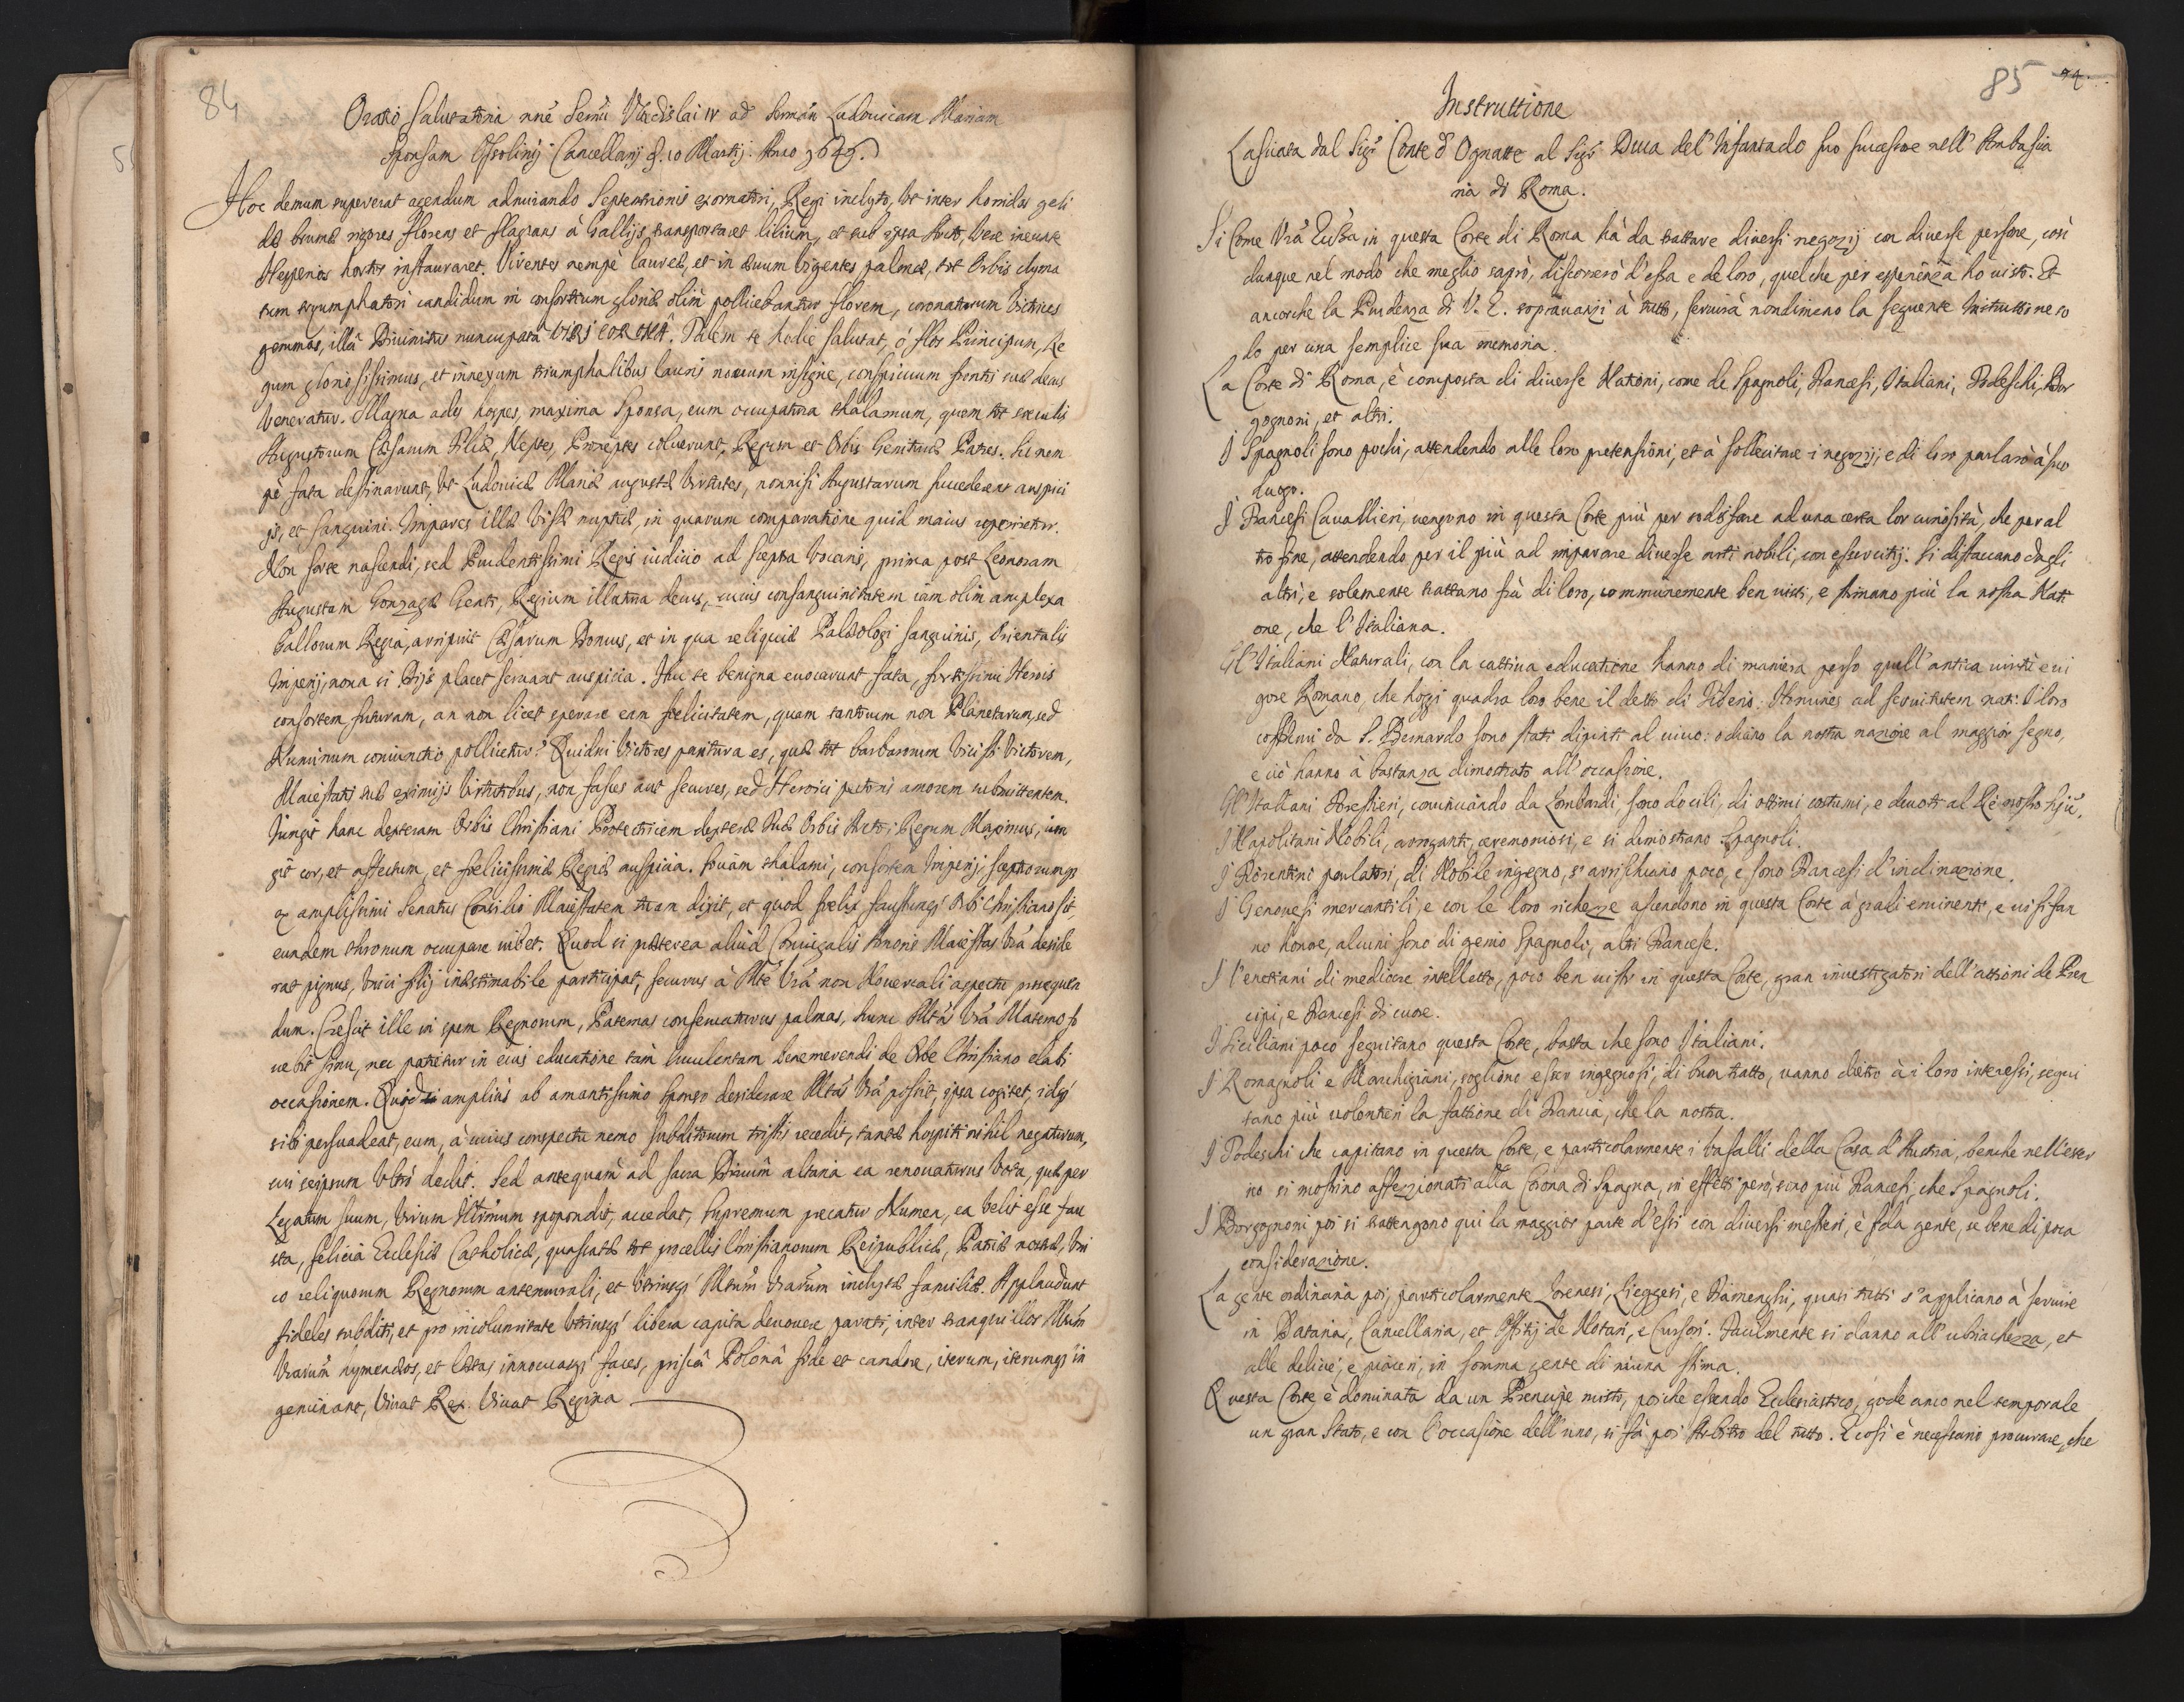 84
Oratio salutatoria nñe Sermi Vladislai IV ad Sermam Ludouicam Mariam
Sponsam Ossolinij Cancellarij d. 10 Martij. Anno 1646.
Hoc demum supererat agendum admirando Septentrionis exornatori, Regi inclyto, ut inter horridos geli
dæ brumæ rigores florens et flagrans à Gallijs transportaret lilium, et sub ipsa Arcto, Vere ineunte
Hesperios hortos instauraret. Virentes nempè laureæ, et in æuum Vigentes palmæ, tot Orbis clyma
tum tryumphatori candidum in consortium gloriæ olim pollicebantur florem, coronaturum Victrices
gemmas, illâ Diuinitus nuncupatâ
Talem te hodie salutat, ó flos Principum, Re
gum gloriosissimus, et innexum triumphalibus lauris nouum insigne, conspicuum fronti suæ decus
Veneratur. Magna ades hospes, maxima Sponsa, eum occupatura thalamum, quem tot sæculis
Augustorum Cæsarum Filiæ, Neptes, Proneptes coluerunt, Regum et Orbis Genituræ Patres. Sic nem
pè fata destinarunt, Vt Ludouicæ Mariæ augustæ Virtutes, nonnisi Augustarum succederent auspici
js, et sanguini. Impares illæ Visæ nuptiæ, in quarum comparatione quid maius reperietur.
Non sorte nascendi, sed Prudentissimi Regis iudicio ad sceptra Vocaris, prima post Leonoram
Augustam Gonzagæ Genti, Regium illatura decus, cuius consanguinitatem iam olim amplexa
Gallorum Regia, arripuit Cæsarum Domus, et in qua reliquiæ Palæologi sanguinis, Orientalis
Imperij, nova si Dijs placet seruant auspicia. Huc te benigna euocarunt fata, fortissimi Herois
consortem futuram, an non licet sperare eam fœlicitatem, quam tantorum non Planetarum, sed
Numinum coniunctio pollicetur? Quidni Victores paritura es, quæ tot barbarorum Vicisti Victorem,
Maiestati suæ eximijs Virtutibus, non fasces aut secures, sed Heroici pectoris amorem submittentem.
Iungit hanc dexteram Orbis Christiani Protectricem dexteræ suæ Orbis Arctoi Regum Maximus, iun
git cor, et affectum, et fœlicissimæ Regiæ auspicia. Sociam thalami, consortem Imperij, sceptrorumq́
ex amplissimi Senatus Consilio Maiestatem tuam dixit, et quod fœlix faustumq́ Orbi Christiano sit
eundem thronum occupare iubet. Quod si præterea aliud Coniugalis Amoris Maiestas Vrã deside
rat pignus, Vnici filij inæstimabile participat, securus à Mte Vrã non Nouercali aspectu prosequen
dum. Crescit ille in spem Regnorum, Paternas consecuturus palmas, hunc Mtas Vrã Materno fo
uebit sinu, nec patietur in eius educatione tàm luculentam benemerendi de Orbe Christiano elabi
occasionem. Quid amplius ab amantissimo Sponso desiderare Mtas Vrã possit, ipsa cogitet, idq́
sibi persuadeat, eum, à cuius conspectu nemo subditorum tristis recedit, tantæ hospiti nihil negaturum,
cui seipsum Vltrò dedit. Sed antequàm ad sacra Diuûm altaria ea renouaturus Vota, quæ per
Legatum suum, Virum Illtrimum spopondit, accedat, supremum precatur Numen, ea Velit esse fau
sta, felicia Ecclesiæ Catholicæ, quassatæ tot procellis Christianorum Reipublicæ, Patriæ nostræ, Vni
co reliquorum Regnorum antemurali, et Vtriusq́ Mtum Vrarum inclytæ familiæ. Applaudunt
fideles subditi, et pro incolumitate Vtriusq́ libera capita deuouere parati, inter tranquillos Mtum
Vrarum hymenæos, et lætas innocuasq́ faces, priscâ Polonâ fide et candore, iterum, iterumq́ in
geminant, Viuat Rex. Viuat Regina
85
Instruttione
Lasciata dal Sigr Conte d'Ognatte al Sigr Duca del'Infantado suo successore nell'Ambascia
ria di Roma.
Si Come Vrã Ecc.za in questa Corte di Roma hà da trattare diuersi negozij con diuerse persone, così
dunque nel modo che meglio saprò, discorrerò d'essa e de loro, quel che per esperienza ho uisto. Et
ancorche la Prudenza di V. E. soprauanzi à tutto, seruirà nondimeno la seguente Instruttione so
lo per una semplice sua memoria.
La Corte di Roma, è composta di diuerse Nationi, come de Spagnoli, Francesi, Italiani, Todeschi, Bor
gognoni, et altri.
I Spagnoli sono pochi, attendendo alle loro pretensioni, et à sollecitare i negozij, e di loro parlarò à suo
luogo.
I Francesi Cauallieri, uengono in questa Corte più per sodisfare ad una certa lor curiosità, che per al
tro fine, attendendo per il più ad imparare diuerse arti nobili, con essercitij. Si distaccano dagli
altri, e solamente trattano frà di loro, communemente ben uisti, e stimano più la nostra Nati
one, che l'Italiana.
Gl'Italiani Naturali, con la cattiua educatione hanno di maniera perso quell'antica uirtù e ui
gore Romano, che hoggi quadra loro bene il detto di Tiberio: Homines ad seruitutem nati. I loro
costumi da S. Bernardo sono stati dipinti al uiuo: odiano la nostra nazione al maggior segno,
e ciò hanno à bastanza dimostrato all'occasione.
Gl'Italiani forestieri, cominciando da Lombardi, sono docili, di ottimi costumi, e deuoti al Rè nostro Sigre.
I Napolitani Nobili, arroganti, ceremoniosi, e si dimostrano Spagnoli.
I Fiorentini parlatori, di Nobile ingegno, s'arrischiano poco, e sono Francesi d'inclinazione.
I Genouesi mercantili, e con le loro richezze ascendono in questa Corte à gradi eminenti, e ui si fan
no honore, alcuni sono di genio Spagnoli, altri Francese.
I Venetiani di mediocre intelletto, poco ben uisti in questa Corte, gran inuestigatori dell'attioni de Pren
cipi, e Francesi di cuore.
I Siciliani poco seguitano questa Corte, basta che sono Italiani.
I Romagnoli e Marchigiani, sogliono esser ingegnosi, di buon tratto, uanno dietro à i loro interessi, segui
tano più uolentieri la fattione di Francia, che la nostra.
I Todeschi che capitano in questa Corte, e particolarmente i Vasalli della Casa d'Austria, benche nell'ester
no si mostrino affezzionati alla Corona di Spagna, in effetti però, sono più Francesi, che Spagnoli.
I Borgognoni poi si trattengono qui la maggior parte d'essi con diuersi mestieri, è fida gente, se bene di poca
considerazione.
La gente ordinaria poi, particolarmente Lorenesi, Lieggesi, e Fiamenghi, quasi tutti s'applicano à seruire
in Dataria, Cancellaria, et Offitij de Notari, e Cursori. Facilmente si danno all'ubriachezza, et
alle delicie, e piaceri, in somma gente di niuna stima.
Questa Corte è dominata da un Prencipe misto, poiche essendo Ecclesiastico, gode anco nel temporale
un gran Stato, e con l'occasione dell'uno, si fà poi Arbitro del tutto. E così è necessario procurare, che